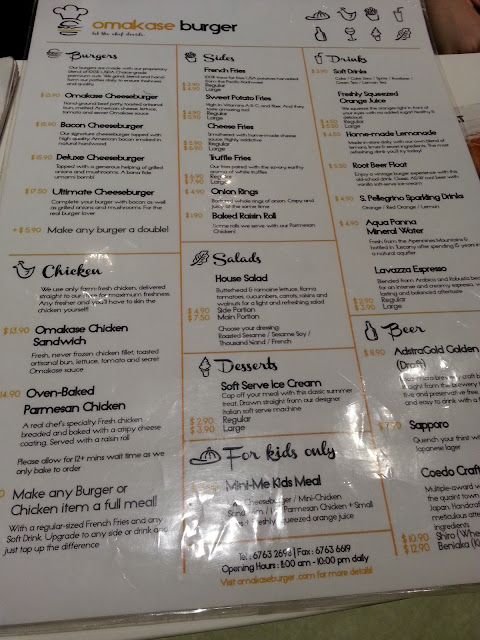 omakase burger
let the chef decide
Burgers
Our burgers are made with our proprietary
blend of 100% USDA Choice-grade
premium cuts. We grind, blend and hand
form our patties daily to ensure freshness
and quality.
Omakase Cheeseburger
Hand-ground beef patty, toasted artisanal
bun, melted American cheese, lettuce,
tomato and secret Omakase sauce
Bacon Cheeseburger
Our signature cheeseburger topped with
high quality American bacon smoked in
natural hardwood
Deluxe Cheeseburger
Topped with a generous helping of grilled
onions and mushrooms. A bona fide
umami bomb!
$17.50 Ultimate Cheeseburger
Complete your burger with bacon as well
as grilled onions and mushrooms. For the
real burger lover
+ $5.90 Make any burger a double!
Chicken
We use only farm fresh chicken, delivered
straight to our store for maximum freshness.
Any fresher and you'll have to skin the
chicken yourself!
$13.90 Omakase Chicken
Sandwich
Fresh, never frozen chicken fillet, toasted
artisanal bun, lettuce, tomato and secret
Omakase sauce
14.90 Oven-Baked
Parmesan Chicken
A real chef's specialty. Fresh chicken,
breaded and baked with a crispy cheese
coating. Served with a raisin roll
Please allow for 12+ mins wait time as we
only bake to order
Make any Burger or
Chicken item a full meal!
With a regular-sized French Fries and any
Soft Drink. Upgrade to any side or drink and
just top up the difference
Sides
French Fries
100% trans fat free USA potatoes harvested
from the Pacific Northwest
Regular
Large
Sweet Potato Fries
High in Vitamins A & C, and fiber. And they
taste amazing
Regular
Large
Cheese Fries
Smothered with home-made cheese
sauce. Highly addictive
Regular
Large
Truffle Fries
Our fries paired with the savory, earthy
aroma of white truffles
$6.90 Regular
$7.90 Large
$4.90 Onion Rings
Battered whole rings of onion. Crispy and
juicy at the same time
$1.90 Baked Raisin Roll
Same rolls we serve with our Parmesan
Chicken!
Salads
House Salad
Butterhead & romaine lettuce, Roma
tomatoes, cucumbers, carrots, raisins and
walnuts for a light and refreshing salad
$4.90 Side Portion
$7.50 Main Portion
Choose your dressing:
Roasted Sesame / Sesame Soy /
Thousand Island / French
Desserts
Soft Serve Ice Cream
Cap off your meal with this classic summer
treat. Drawn straight from our designer
Italian soft serve machine
$2.90 Regular
$3.90 Large
For kids only
Mini-Me Kids Meal
Cheeseburger / Mini-Chicken
Parmesan Chicken + Small
freshly squeezed orange juice
Tel : 6763 2698 | Fax : 6763 6619
Opening Hours : 11:00 am - 10:00 pm daily
Visit omakaseburger .com for more details!
Drinks
Soft Drinks
Coke / Coke Zero / Sprite / Rootbeer /
Green Tea / Lemon Tea
Freshly Squeezed
Orange Juice
We squeeze the oranges right in front of
your eyes with no added sugar. Healthy &
delicious
Regular
Large
Home-made Lemonade
Made in-store daily with our own blend of
lemons, limes & secret ingredients. The most
refreshing drink you'll try today!
Root Beer Float
Enjoy a vintage burger experience with this
old-school drink. Classic A&W root beer with
vanilla soft-serve ice cream
$4.90 S. Pellegrino Sparkling Drinks
Orange / Red Orange / Lemon
$4.90 Aqua Panna
Mineral Water
Fresh from the Apennines Mountains &
bottled in Tuscany after spending years in
a natural aquifer
Lavazza Espresso
Blended from Arabica and Robusta beans
for an intense and creamy espresso, with
lasting and balanced aftertaste
$2.90 Regular
$3.90 Large
Beer
$8.90 AdstraGold Golden
(Draft)
micro-brewery craft b
straight from the brewery t
live and preservative free.
and easy to drink with a
Sapporo
Quench your thirst wit
Japanese lager
Coedo Craft
Multiple-award w
the quaint town
Japan. Handcraf
meticulous atten
ingredients
$10.90 Shiro (Whe
$12.90 Beniaka (K